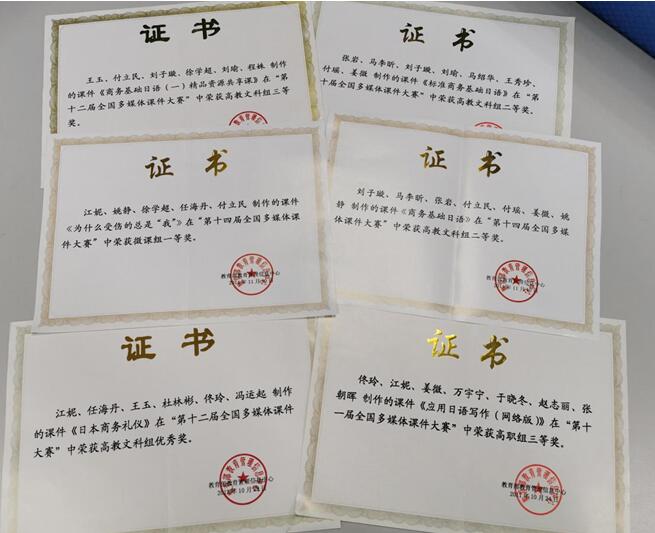 证书
王玉、付立民、刘子璇、徐学超、刘瑜、程姝 制作
的课件《商务基础日语(一)精品资源共享课》在“第
十二届全国多媒体课件大赛”中荣获高教文科组三等
奖。
证书
张岩、马李昕、刘子璇、刘瑜、马绍华、王秀珍、
付瑶、姜微 制作的课件《标准商务基础日语》在“第
十届全国多媒体课件大赛”中荣获高教文科组二等奖。
证书
江妮、姚静、徐学超、任海丹、付立民 制作的课件
《为什么受伤的总是“我”》在“第十四届全国多媒体
课件大赛”中荣获微课组一等奖。
教育部教育管理信息中心
证书
刘子璇、马李昕、张岩、付立民、付瑶、姜微、姚
静 制作的课件《商务基础日语》在“第十四届全国多媒
体课件大赛”中荣获高教文科组二等奖。
教育部教育管理信息中心
证书
江妮、任海丹、王玉、杜林彬、佟玲、冯运起 制作
的课件《日本商务礼仪》在“第十二届全国多媒体课件
大赛”中荣获高教文科组优秀奖。
教育部教育管理信息中心
证书
佟玲、江妮、姜微、万宇宁、于晓冬、赵志丽、张
朝晖 制作的课件《应用日语写作(网络版)》在“第十
一届全国多媒体课件大赛”中荣获高职组三等奖。
教育部教育管理信息中心